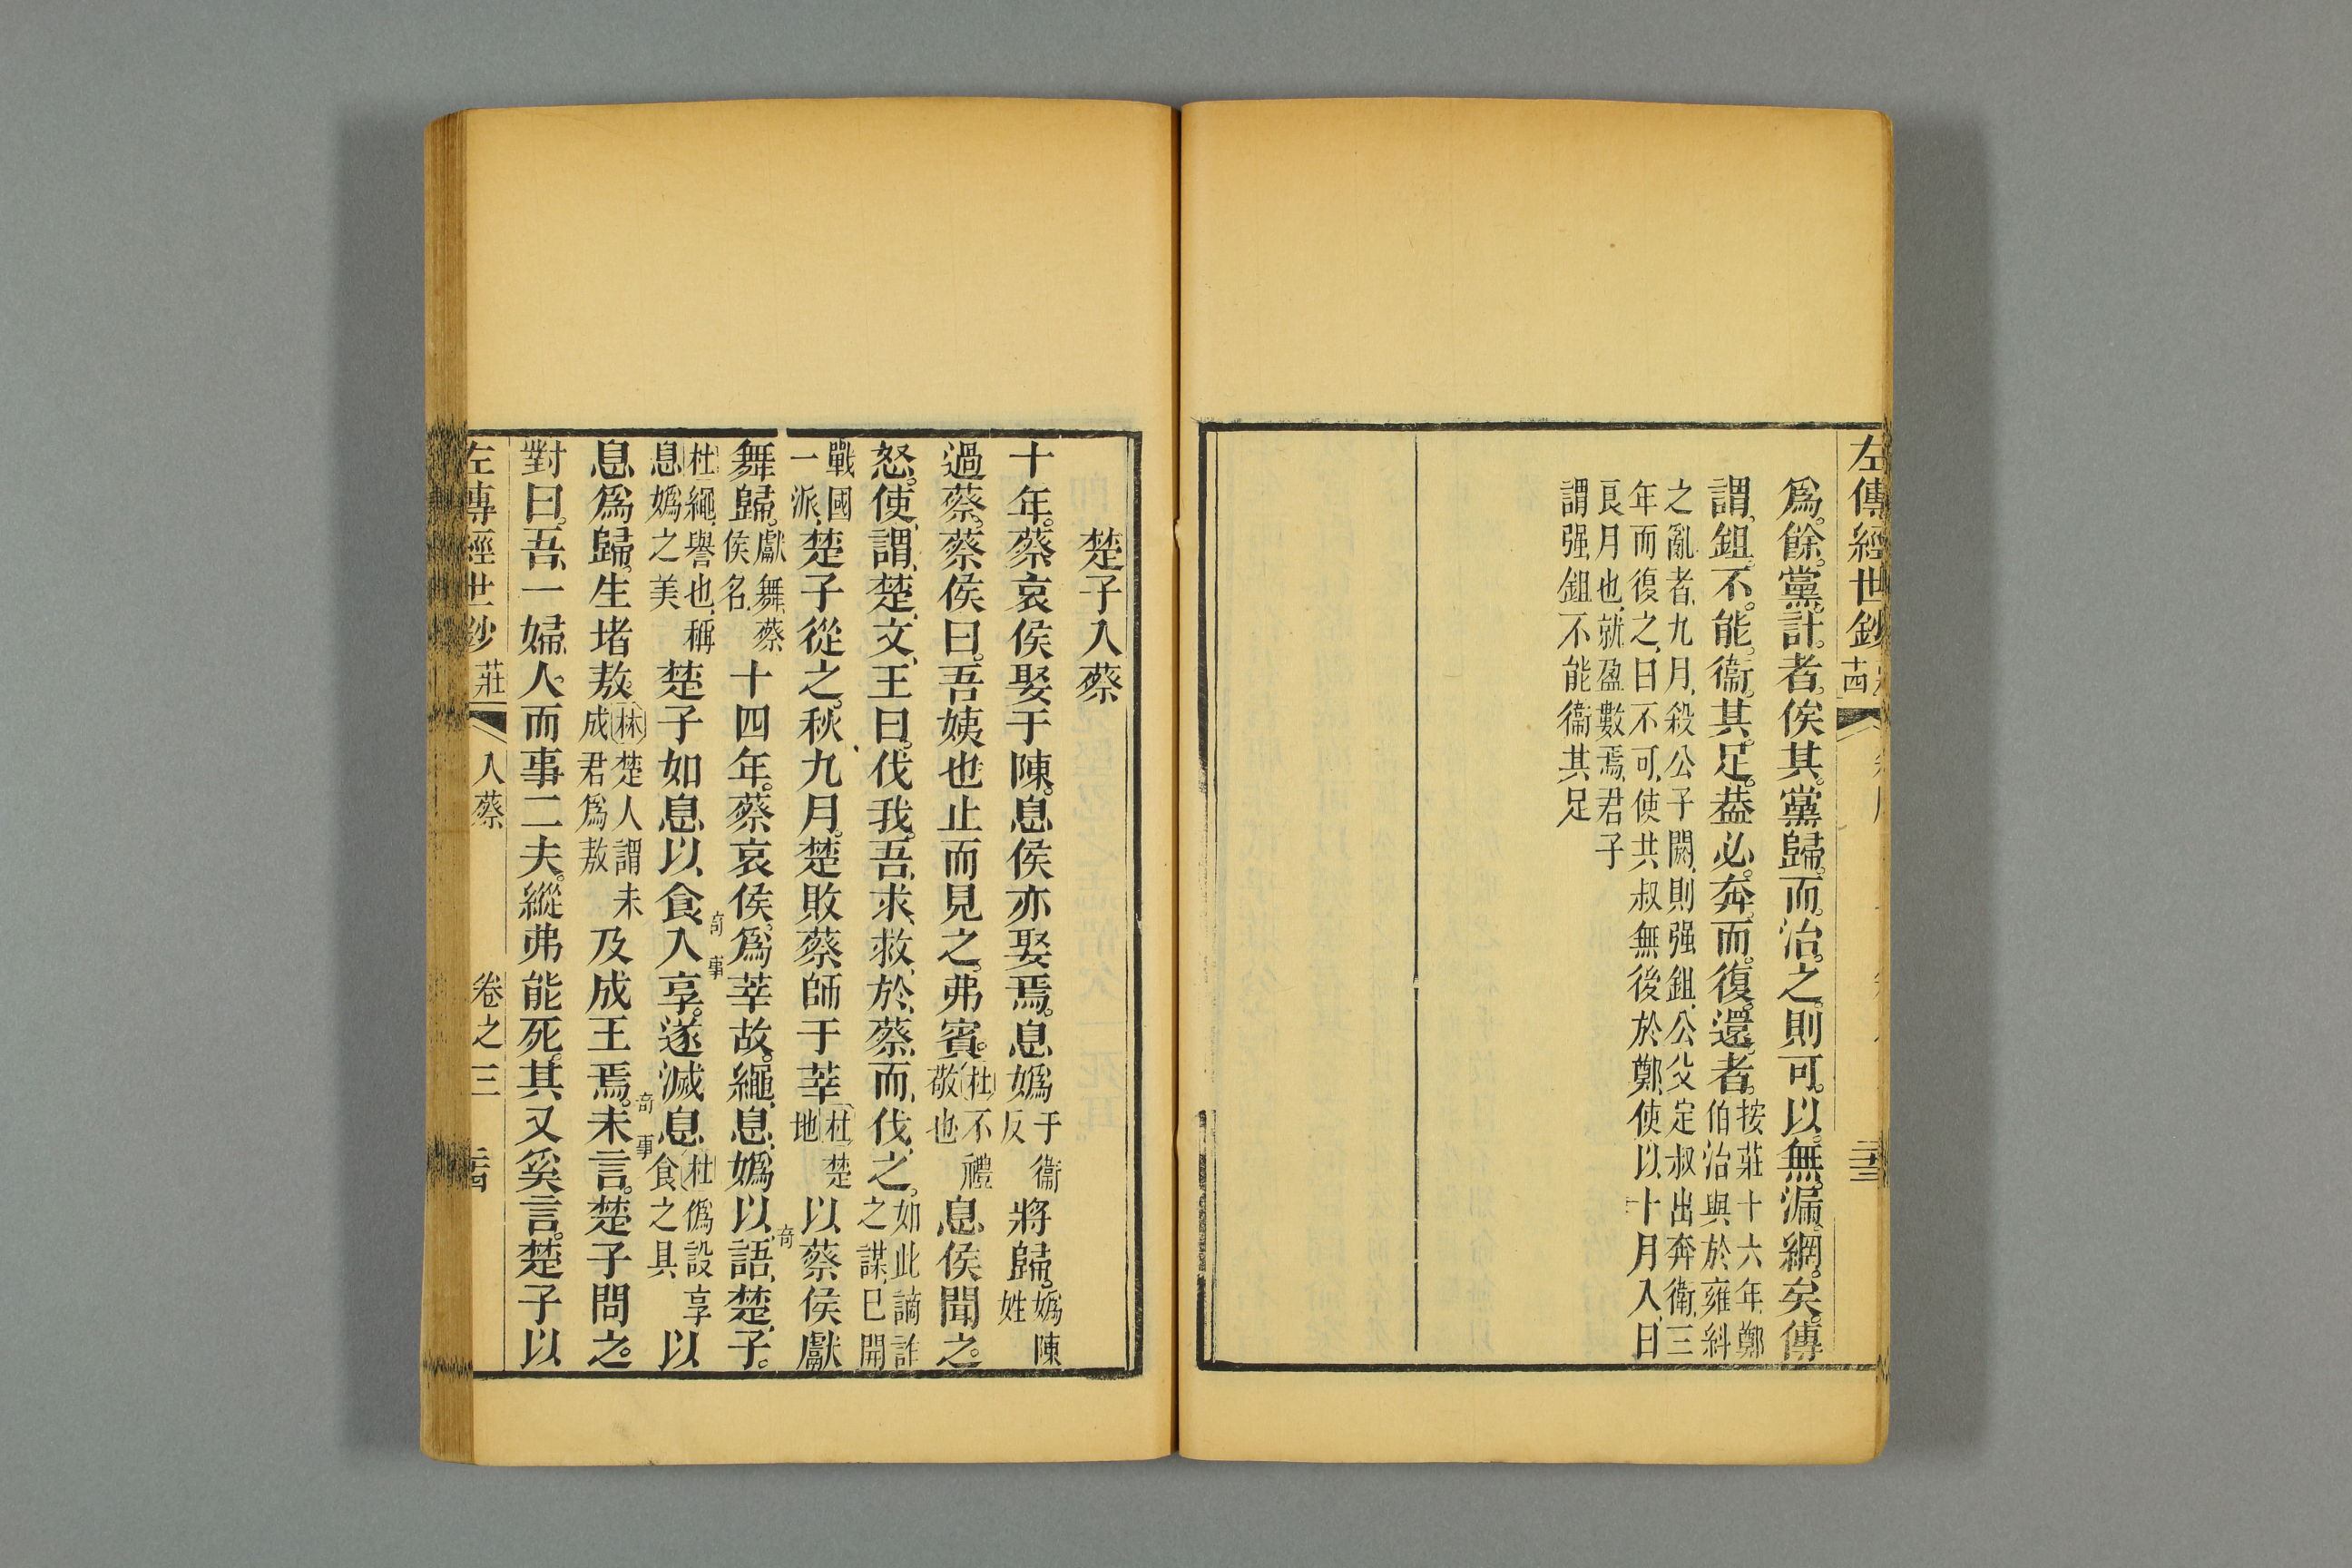 左傳經世鈔
十四
為餘黨計者俟其黨歸而治之則可以無漏網矣傳
謂鉏不能衞其足葢必奔而復還者
按莊十六年鄭
伯治與於雍糾
之亂者九月殺公子閼則强鉏公父定叔出奔衛三
年而復之曰不可使共叔無後於鄭使以十月入曰
良月也就盈數焉君子
謂强鉏不能衞其足
楚子入蔡
十年蔡哀侯娶于陳息侯亦娶焉息媯
于衞
反
將歸
媯陳
姓
過蔡蔡侯曰吾姨也止而見之弗賓
杜不禮
敬也
息侯聞之
怒使謂楚文王曰伐我吾求救於蔡而伐之
如此譎詐
之謀已開
戰國
一派
楚子從之秋九月楚敗蔡師于莘
杜楚
地
以蔡侯獻
舞歸
獻舞蔡
侯名
十四年蔡哀侯為莘故繩息媯以語楚子
奇
杜繩譽也稱
息媯之美
楚子如息以食入享遂滅息
奇事
杜僞設享
食之具
以
息媯歸生堵敖
林楚人謂未
成君爲敖
及成王焉未言楚子問之
奇事
對曰吾一婦人而事二夫縱弗能死其又奚言楚子以
左傳經世鈔
莊
入蔡
卷之三